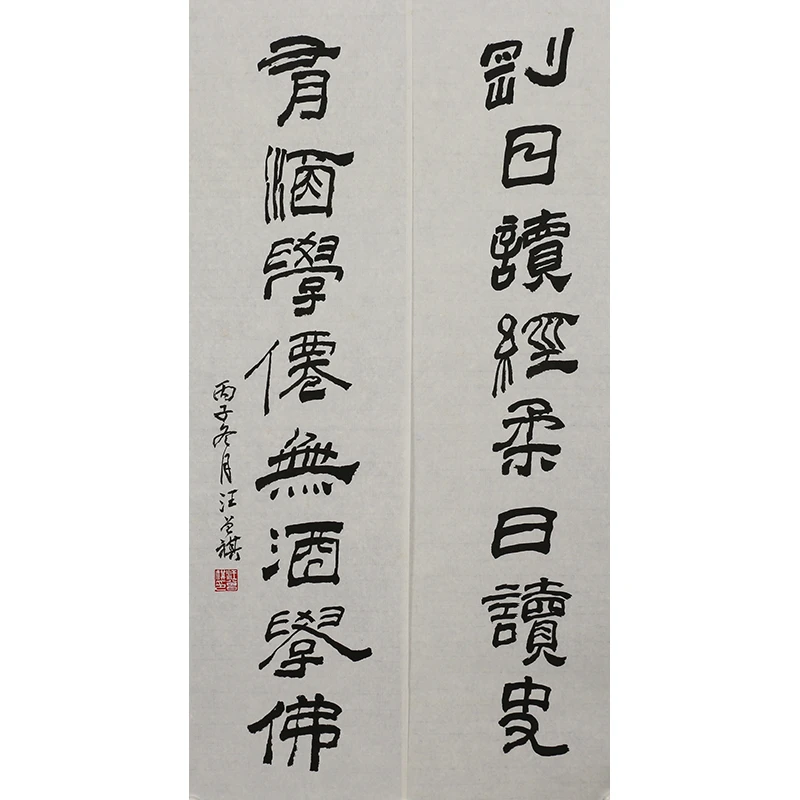 剛日讀經柔日讀史
有酒學僊無酒學佛
丙子冬月汪曾祺